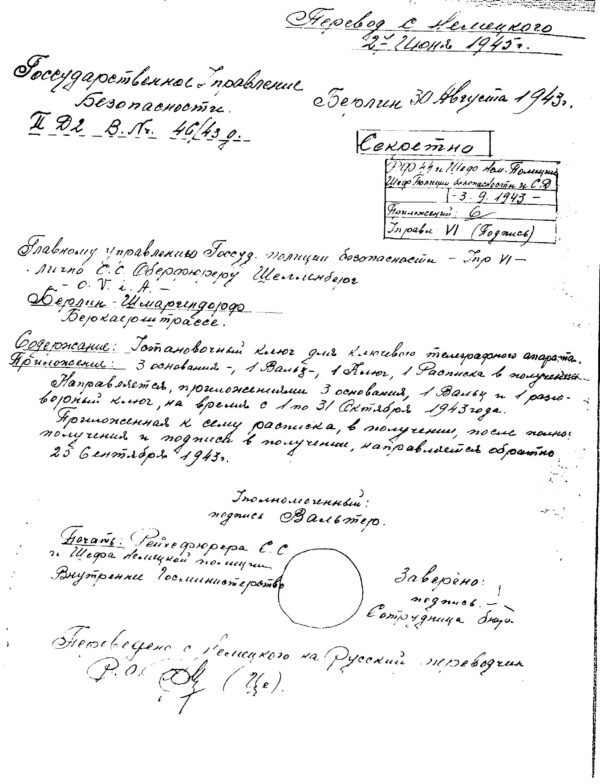 Перевод с Немецкого
2го Июня 1945г.
Госсударственное Управление
Безопасности.
Берлин 30 Августа 1943г.
II Д2 В.Nr. 46/43 г.
Секретно
РФ SS и Шефа нем. Полиции
Шеф Полиции безопасности и С.Д
-3. 9. 1943-
Приложений: 6
Управл VI (Подпись)
Главному управлению Госсуд. полиции безопасности - Упр VI -
лично С.С Оберфюреру Шелленберг
- о. V. i. A. -
Берлин - Шмаргендорф
Беркаерштрассе.
Содержание: Установочный ключ для ключевого телеграфного аппарата.
Приложение: 3 основания -, 1 Вальц -, 1 Ключ, 1 Расписка в получении
Направляется, приложениями 3 основания, 1 Вальц и 1 разго-
ворный ключ, на время с 1 по 31 Октября 1943 года.
Приложенная к сему расписка, в получении, после
получения и подписи в получении, направляется обратно
25 Сентября 1943г.
Уполномоченный:
подпись Вальтер.
Печать: Рейхсфюрера С.С
и Шефа Немецкой полиции
Внутренне Госминистерство
Заверено:
подпись.
Сотрудница бюро
Переведено с Немецкого на Русский переводчик
Р.О. (Це).